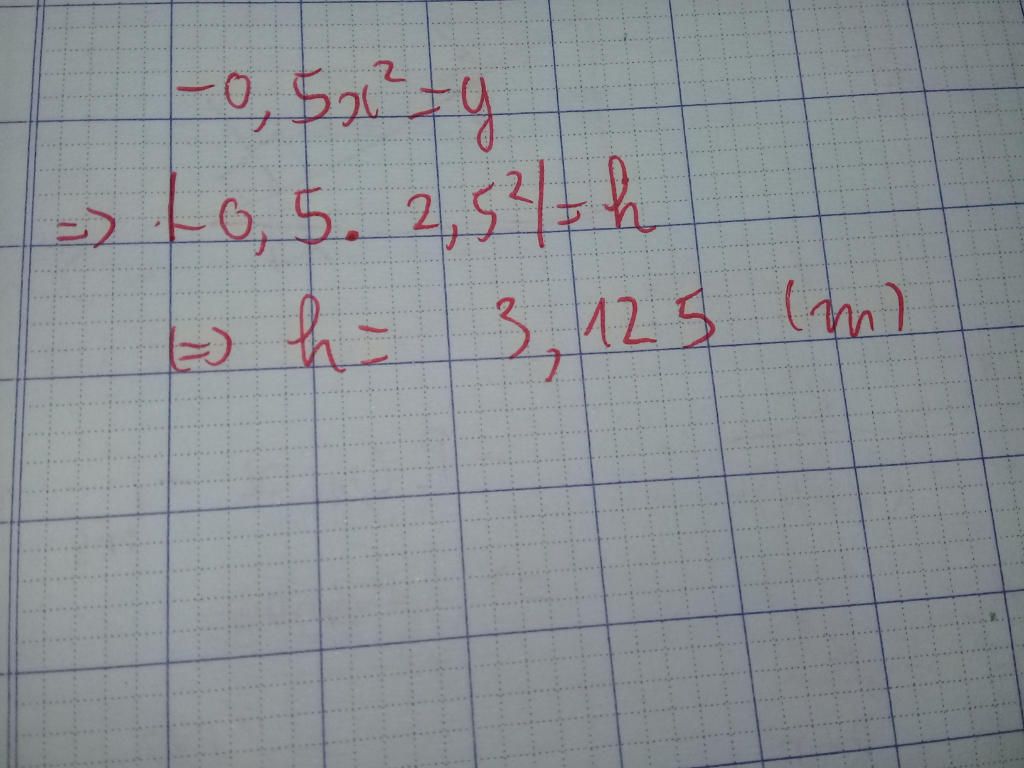 -0,5x² = y
=> |-0,5. 2,5²| = h
<=> h = 3,125 (m)